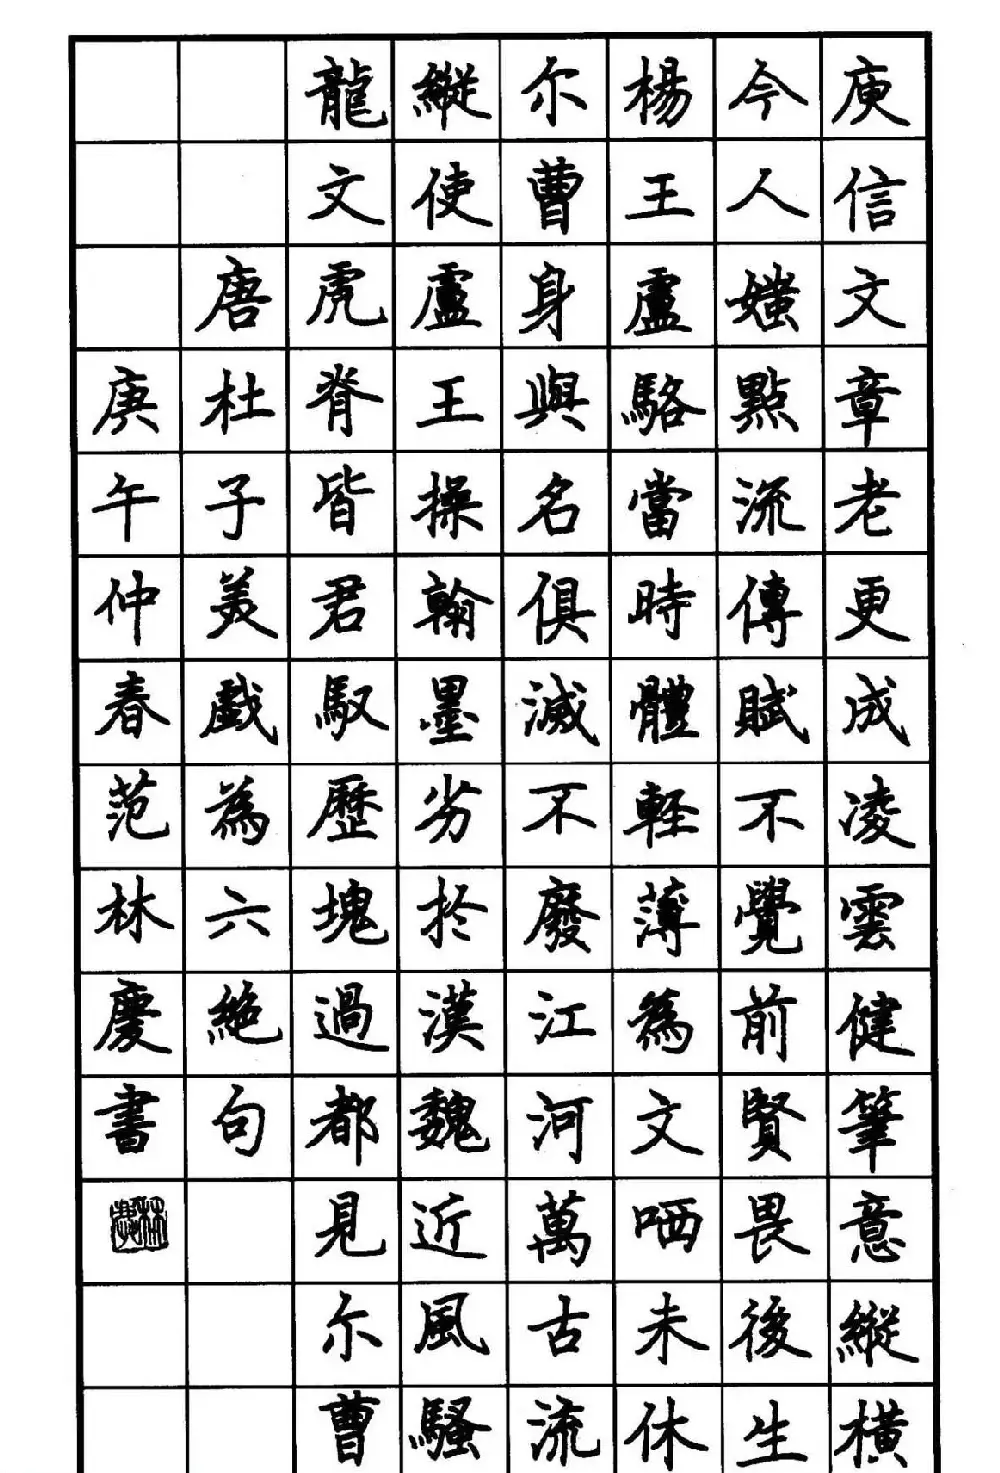 庾信文章老更成凌雲健筆意縱橫
今人媸點流傳賦不覺前賢畏後生
楊王盧駱當時體軽薄為文哂未休
尔曹身與名俱滅不廢江河萬古流
縱使盧王操翰墨劣於漢魏近風騷
龍文虎脊皆君馭歷塊過都見尔曹
唐杜子美戲為六絕句
庚午仲春范林慶書